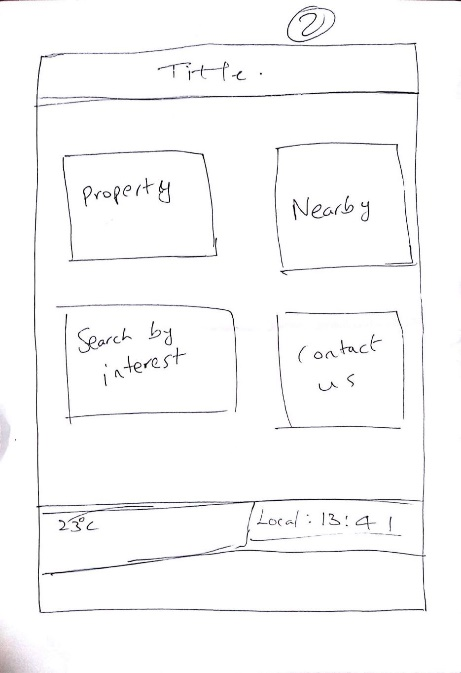 2
Title.
Property
Nearby
Search by
interest
Contact
us
23°C
Local: 13:41